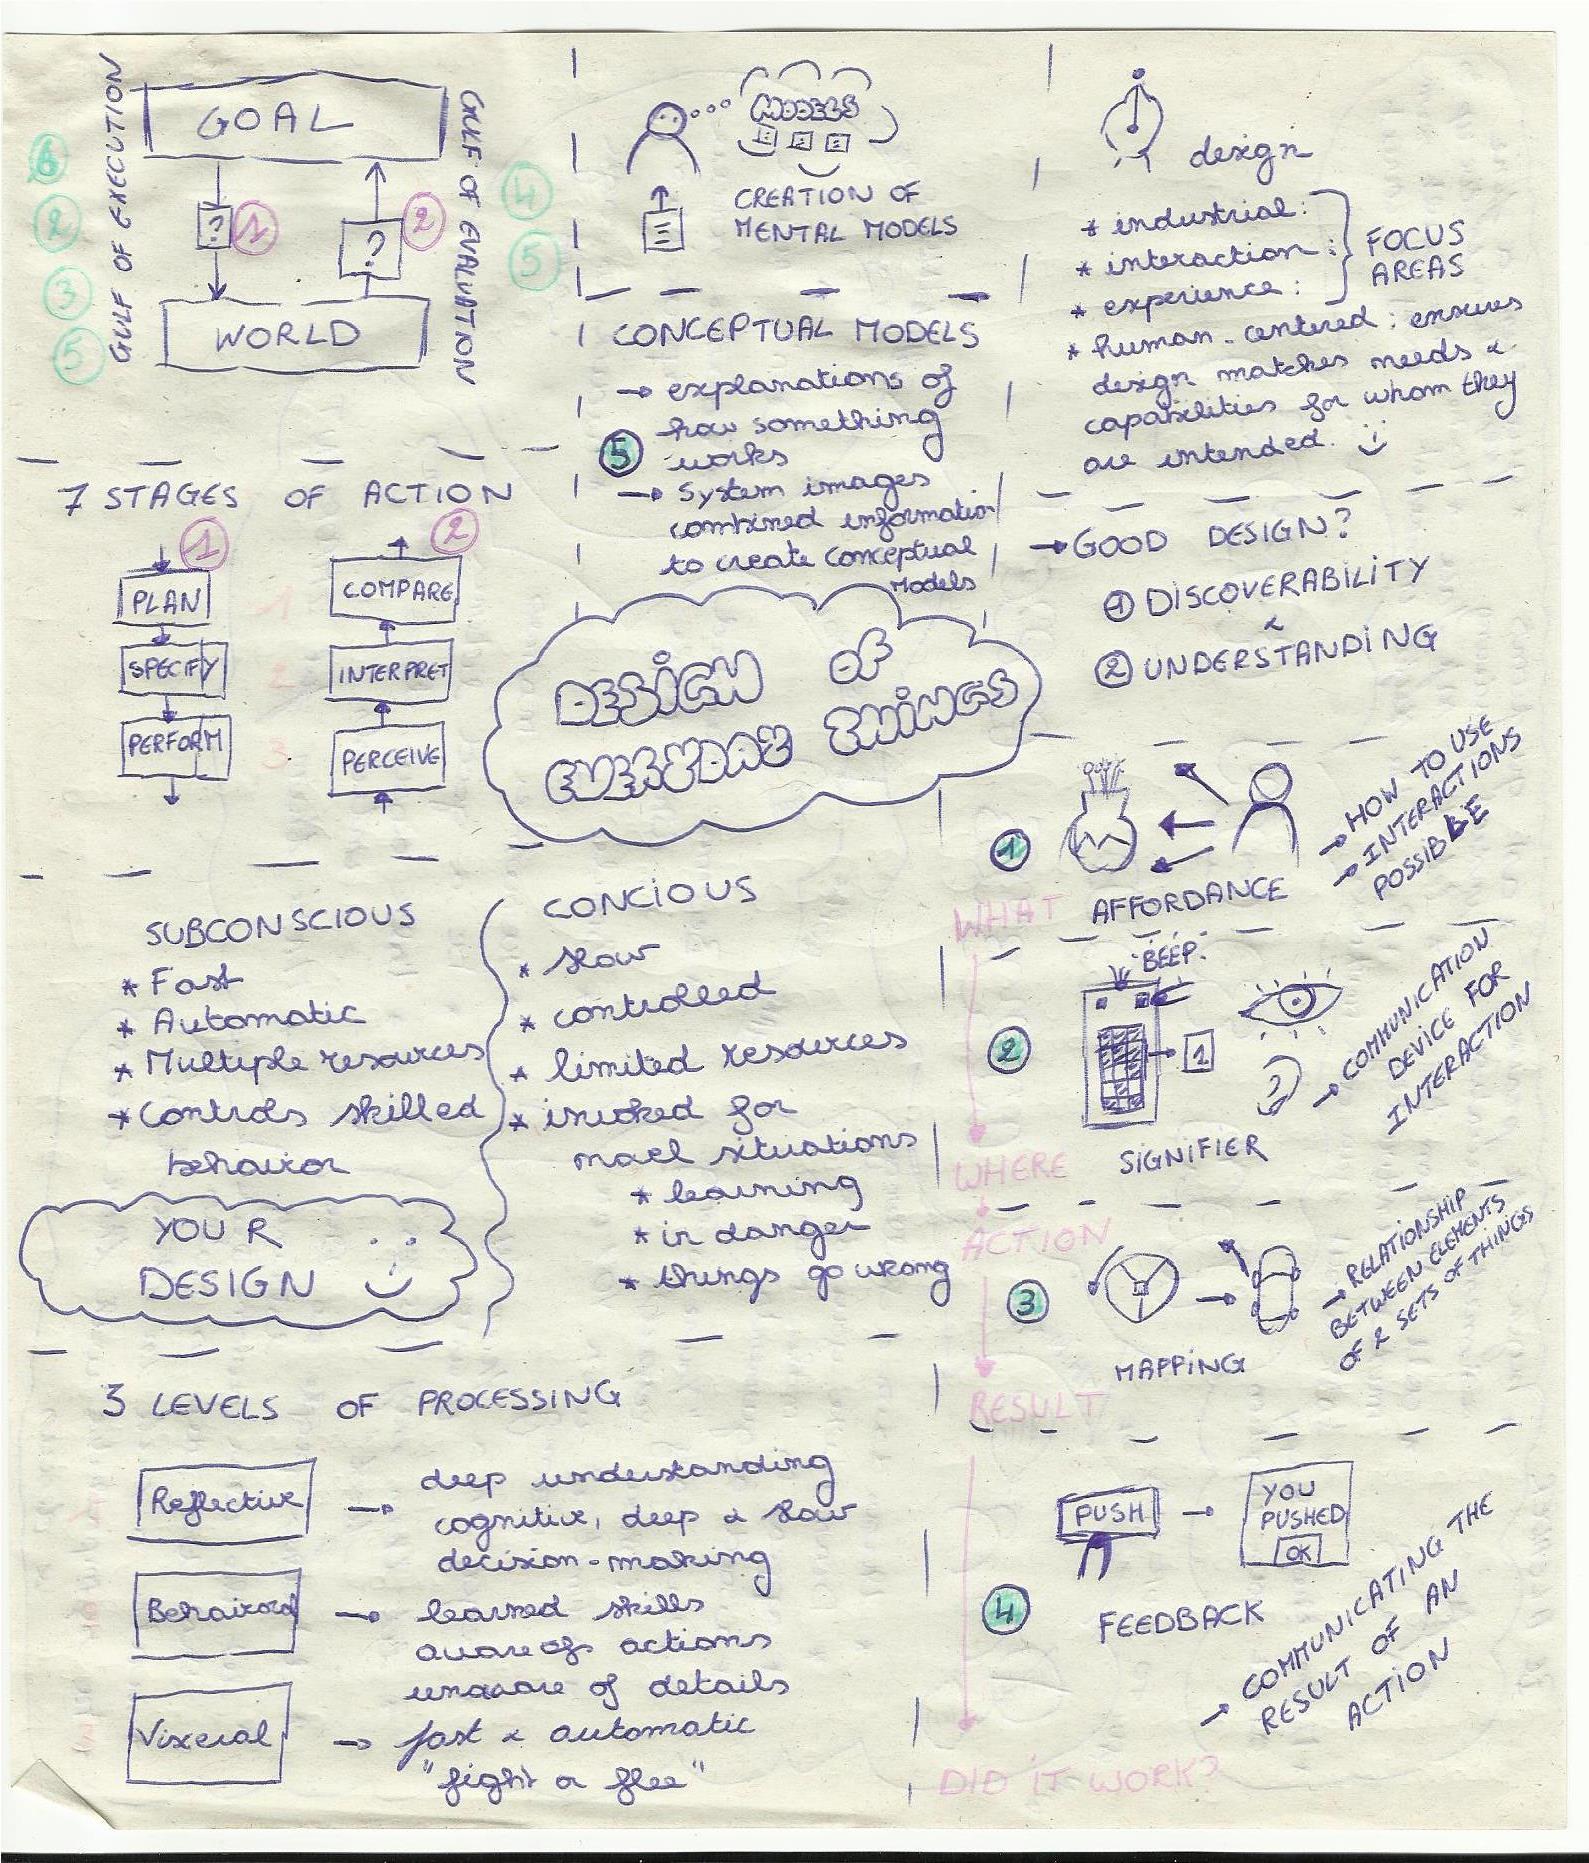 GULF OF EXECUTION
GOAL
GULF OF EVALUATION
6
2
3
5
?
1
?
2
4
5
WORLD
MODELS
CREATION OF
MENTAL MODELS
design
* industrial:
* interaction:
* experience:
FOCUS
AREAS
* human-centered: ensures
design matches needs &
capabilities for whom they
are intended.
CONCEPTUAL MODELS
→ explanations of
how something
works
5
→ System images
combined information
to create conceptual
Models
7 STAGES OF ACTION
1
2
PLAN
SPECIFY
PERFORM
1
2
3
COMPARE
INTERPRET
PERCEIVE
→ GOOD DESIGN?
1 DISCOVERABILITY
&
2 UNDERSTANDING
DESIGN OF
EVERYDAY THINGS
1
AFFORDANCE
→ HOW TO USE
→ INTERACTIONS
POSSIBLE
WHAT
SUBCONSCIOUS
* Fast
* Automatic
* Multiple resources
* Controls skilled
behavior
YOU R
DESIGN
CONCIOUS
* slow
* controlled
* limited resources
* invoked for
situations
* learning
* in danger
* things go wrong
BEEP.
2
1
SIGNIFIER
→ COMMUNICATION
DEVICE FOR
INTERACTION
WHERE
ACTION
3
MAPPING
→ RELATIONSHIP
BETWEEN ELEMENTS
OF 2 SETS OF THINGS
RESULT
3 LEVELS OF PROCESSING
Reflective
→ deep understanding
cognitive, deep & slow
decision-making
Behavioral
→ learned skills
aware of actions
unaware of details
Visceral
→ fast & automatic
"fight or flee"
PUSH
→
YOU
PUSHED
OK
4
FEEDBACK
→ COMMUNICATING THE
RESULT OF AN
ACTION
DID IT WORK?